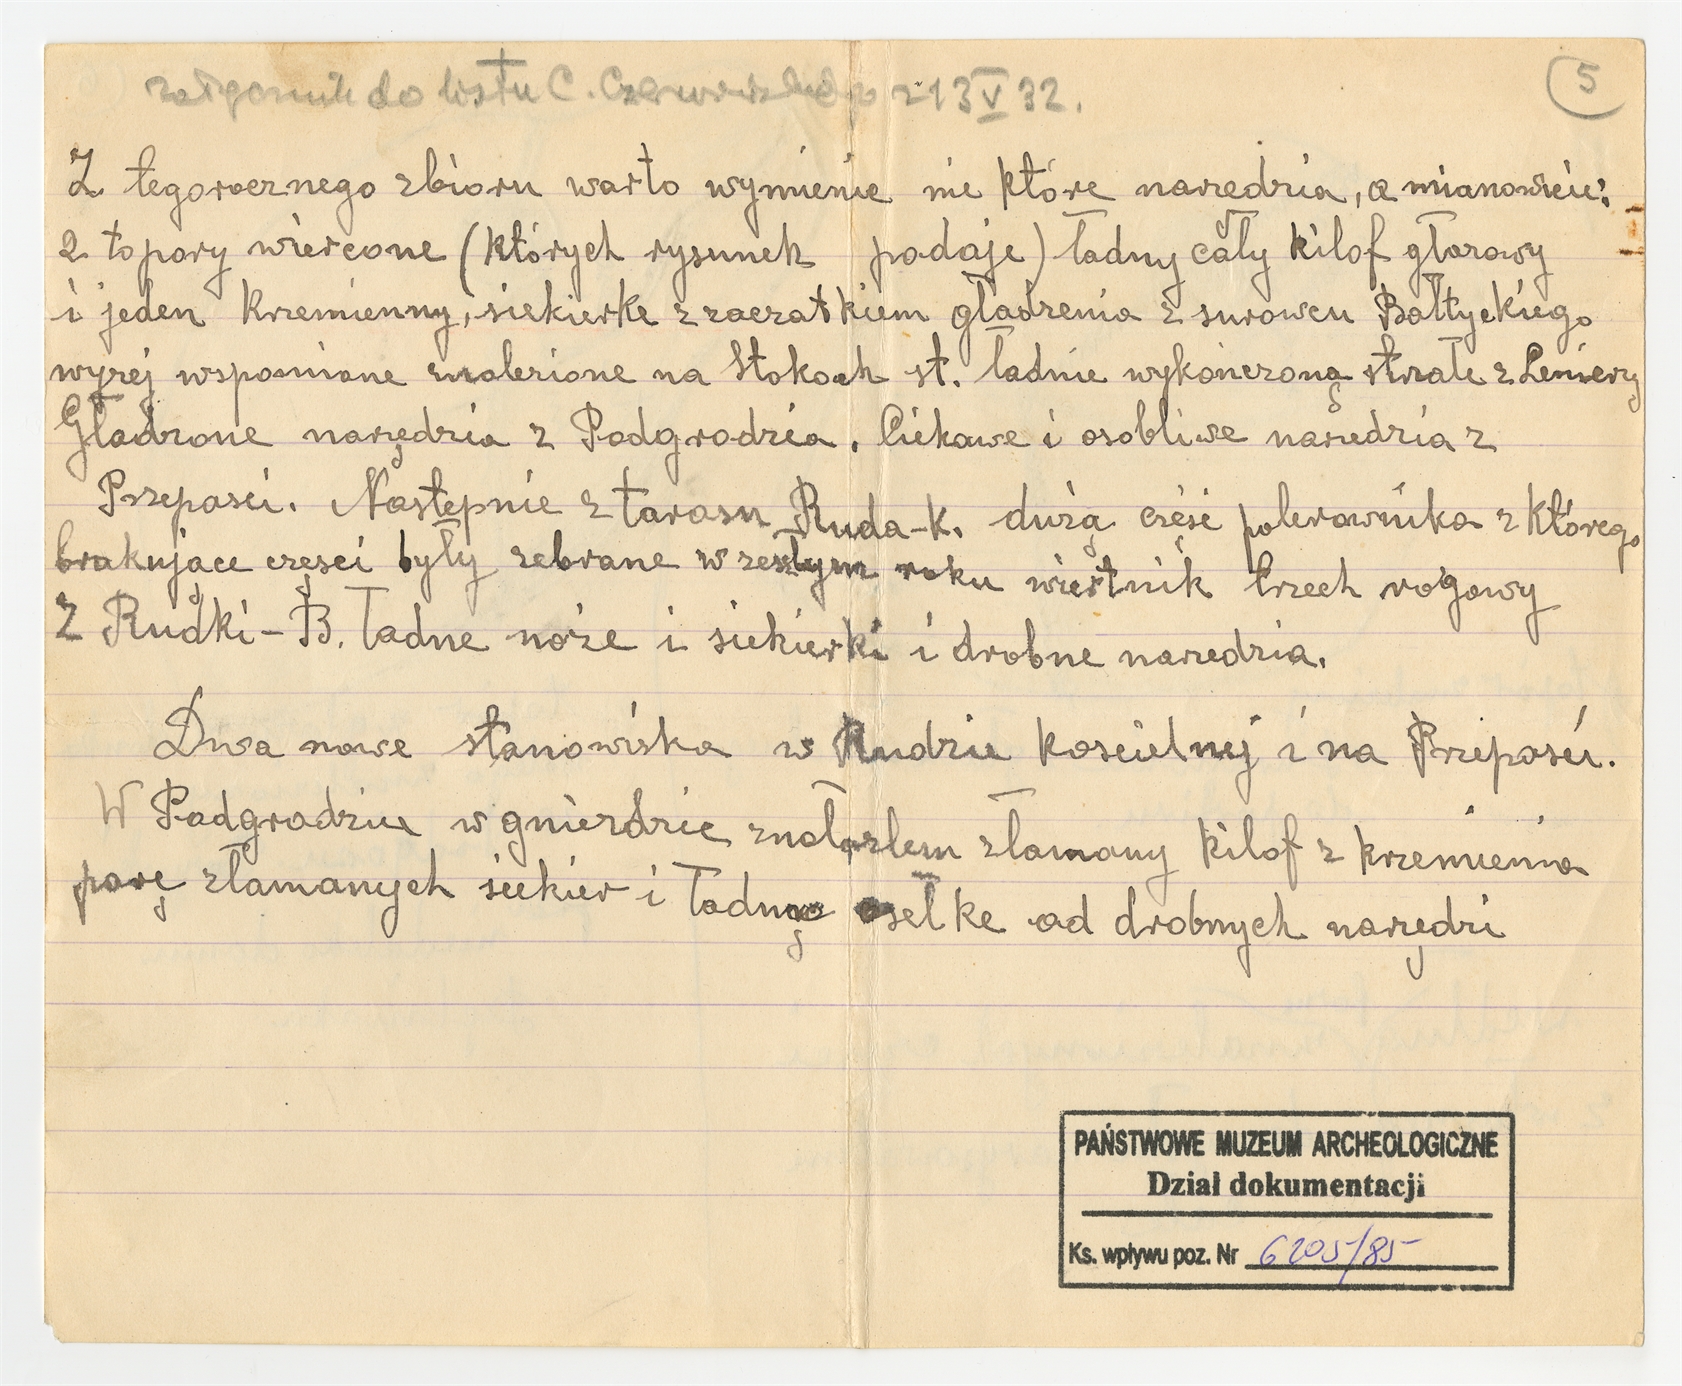 załącznik do listu C. Czerwińskiego z 13 V 32.
5
Z tegorocznego zbioru warto wymienie nie które narzedzia, a mianowicie:
2 topory wiercone (których rysunek podaje) ładny cały kilof głazowy
i jeden krzemienny, siekierke z zaczatkiem gładzenia z surowcu Bałtyckiego
wyzej wspomiane znalezione na Stokach st. ładnie wykończoną strzałe z
Gładzone narzędzia z Podgrodzia. Ciekawe i osobliwe narzedzia z
Przepasci. Nastepnie z tarasu Ruda-K. dużą część polerownika z którego
brakujące częsci były zebrane w zeszłym roku wiertnik trzech rogowy
Z Rudki-B. ładne noże i siekierki i drobne narzedzia.
Dwa nowe stanowiska w Rudzie koscielnej i na Przeposci.
W Podgrodziu w gnieździe znalazłem złamany kilof z krzemienia
parę złamanych siekier i ładną osełke od drobnych narzędzi
PAŃSTWOWE MUZEUM ARCHEOLOGICZNE
Dział dokumentacji
Ks. wpływu poz. Nr 6205/85